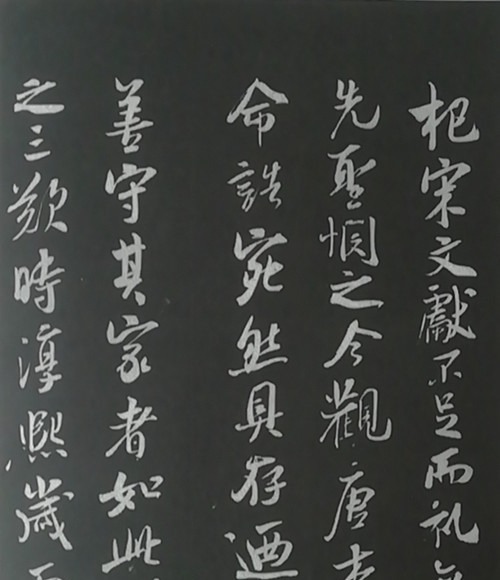 杞宋文獻不足而礼
先聖憫之今觀唐
命誥宛然具存迺
善守其家者如此
之三歎時淳熙歲